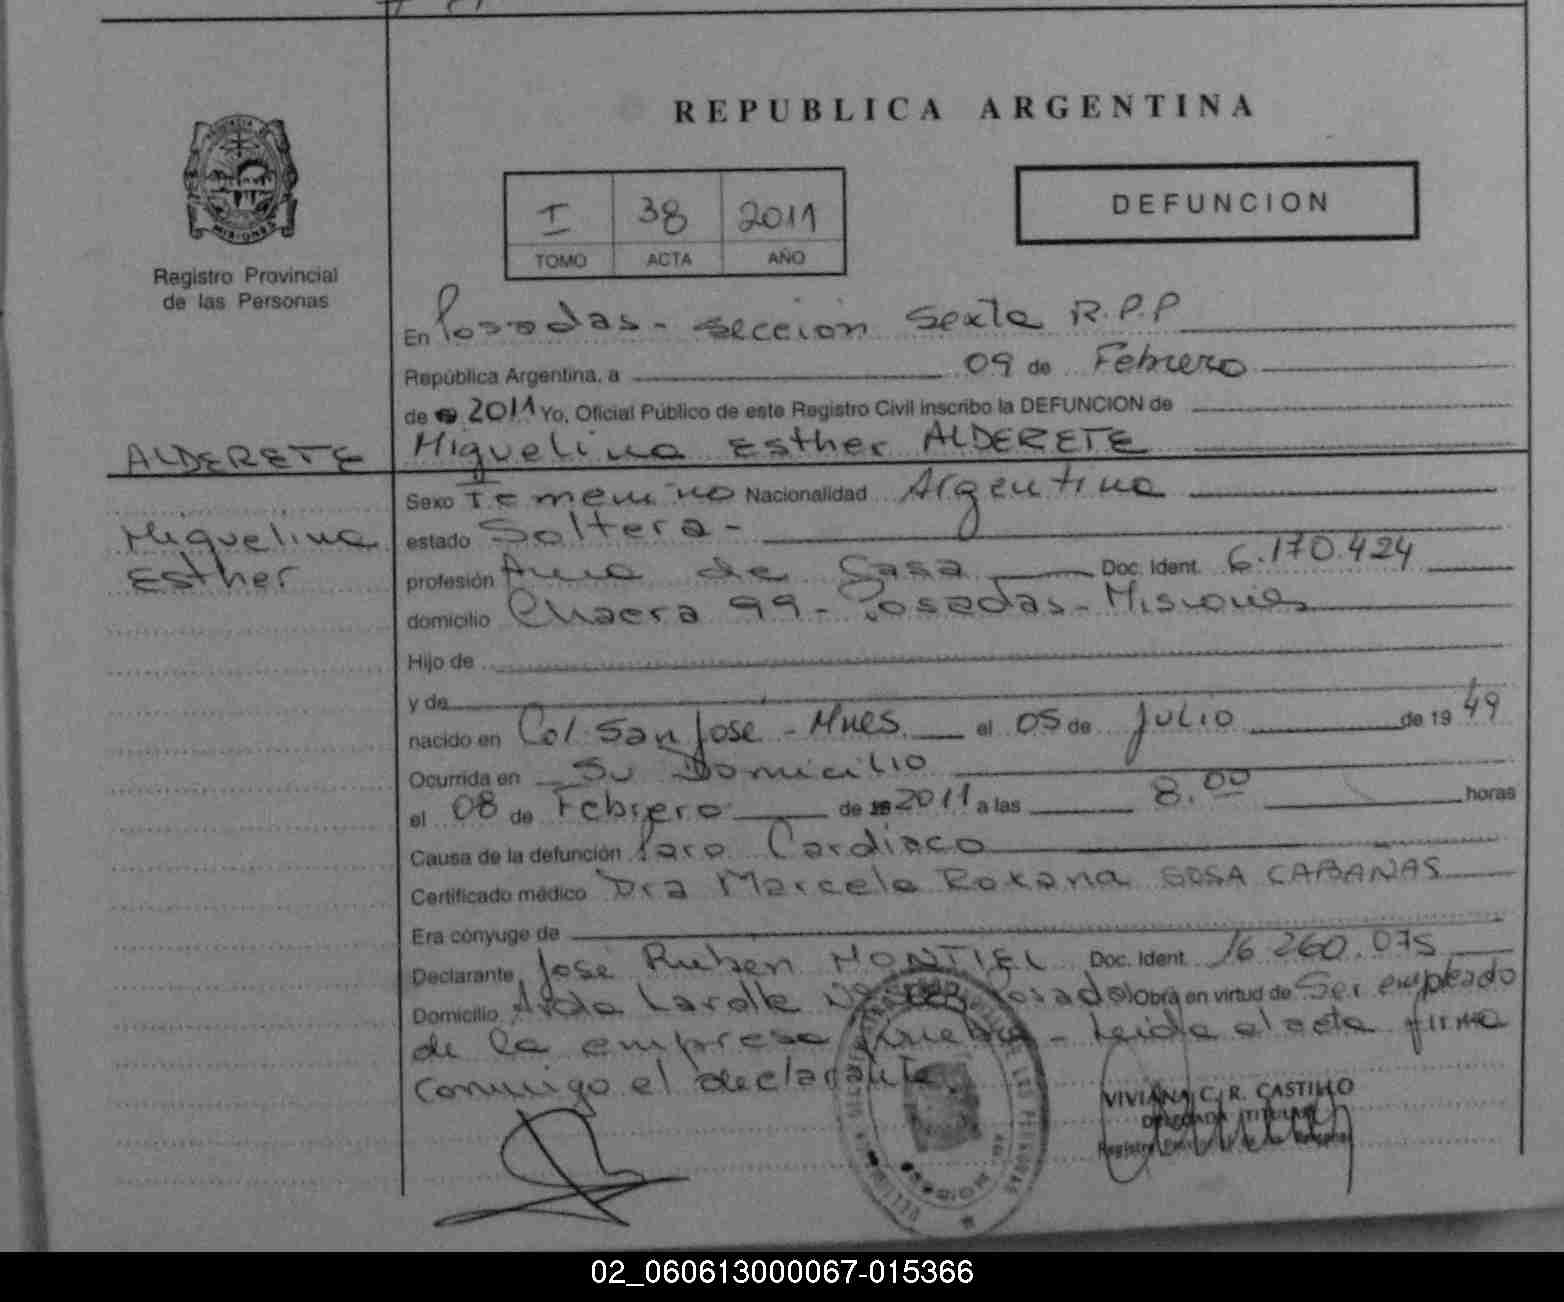 REPUBLICA ARGENTINA
Registro Provincial
de las Personas
I 38 2011
TOMO ACTA AÑO
DEFUNCION
En Posadas - seccion Sexta R.P.P
República Argentina, a 09 de Febrero
de 2011 Yo, Oficial Público de este Registro Civil inscribo la DEFUNCION de
ALDERETE
Miguelina Esther
Miguelina Esther ALDERETE
Sexo Femenino Nacionalidad Argentina
estado Soltera -
profesión Ama de Casa Doc. Ident. 6.170.424
domicilio Chacra 99 - Posadas - Misiones
Hijo de
y de
nacido en Col. San Jose - Mnes el 05 de Julio de 19 49
Ocurrida en Su Domicilio
el 08 de Febrero de 2011 a las 8.00 horas
Causa de la defunción Paro Cardiaco
Certificado médico Dra Marcela Roxana SOSA CABANAS
Era cónyuge de
Declarante José Ruben MONTIEL Doc. Ident. 16.260.075
Domicilio Avda Lavalle Posadas Obra en virtud de Ser empleado
de la empresa funebre - Leida el acta firma
conmigo el declarante.
VIVIANA C. R. CASTILLO
DELEGADA TITULAR
02_060613000067-015366